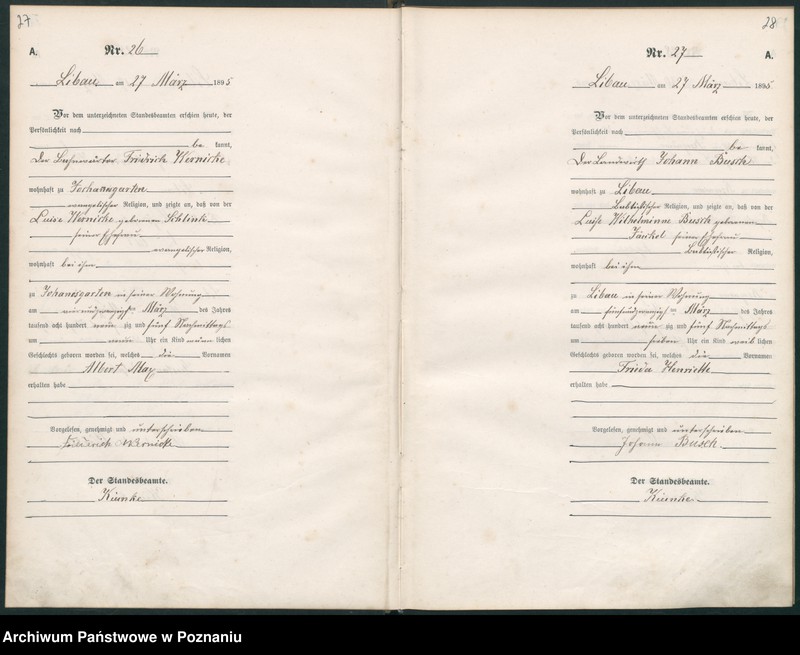 27
A.
Nr. 26
Libau am 27 März 1895
Vor dem unterzeichneten Standesbeamten erschien heute, der
Persönlichkeit nach
be kannt,
Der Friedrich Wernicke
wohnhaft zu Johannsgarten
evangelischer Religion, und zeigte an, daß von der
Luise Wernicke geborenen Schlink
seiner Ehefrau
evangelischer Religion,
wohnhaft bei ihm
zu Johannsgarten in seiner Wohnung
am vierundzwanzigsten März des Jahres
tausend acht hundert neun zig und fünf Nachmittags
um neun Uhr ein Kind männ lichen
Geschlechts geboren worden sei, welches die Vornamen
Albert Max
erhalten habe
Vorgelesen, genehmigt und unterschrieben
Friederich Wernicke
Der Standesbeamte.
28
A.
Nr. 27
Libau am 27 März 1895
Vor dem unterzeichneten Standesbeamten erschien heute, der
Persönlichkeit nach
be kannt,
Der Landwirth Johann Busch
wohnhaft zu Libau
Religion, und zeigte an, daß von der
Luise Wilhelmine Busch geborenen
Jaekel seiner Ehefrau
Religion,
wohnhaft bei ihm
zu Libau in seiner Wohnung
am fünfundzwanzigsten März des Jahres
tausend acht hundert neun zig und fünf Nachmittags
um sieben Uhr ein Kind weib lichen
Geschlechts geboren worden sei, welches die Vornamen
Frieda Henriette
erhalten habe
Vorgelesen, genehmigt und unterschrieben
Johann Busch
Der Standesbeamte.
Archiwum Państwowe w Poznaniu